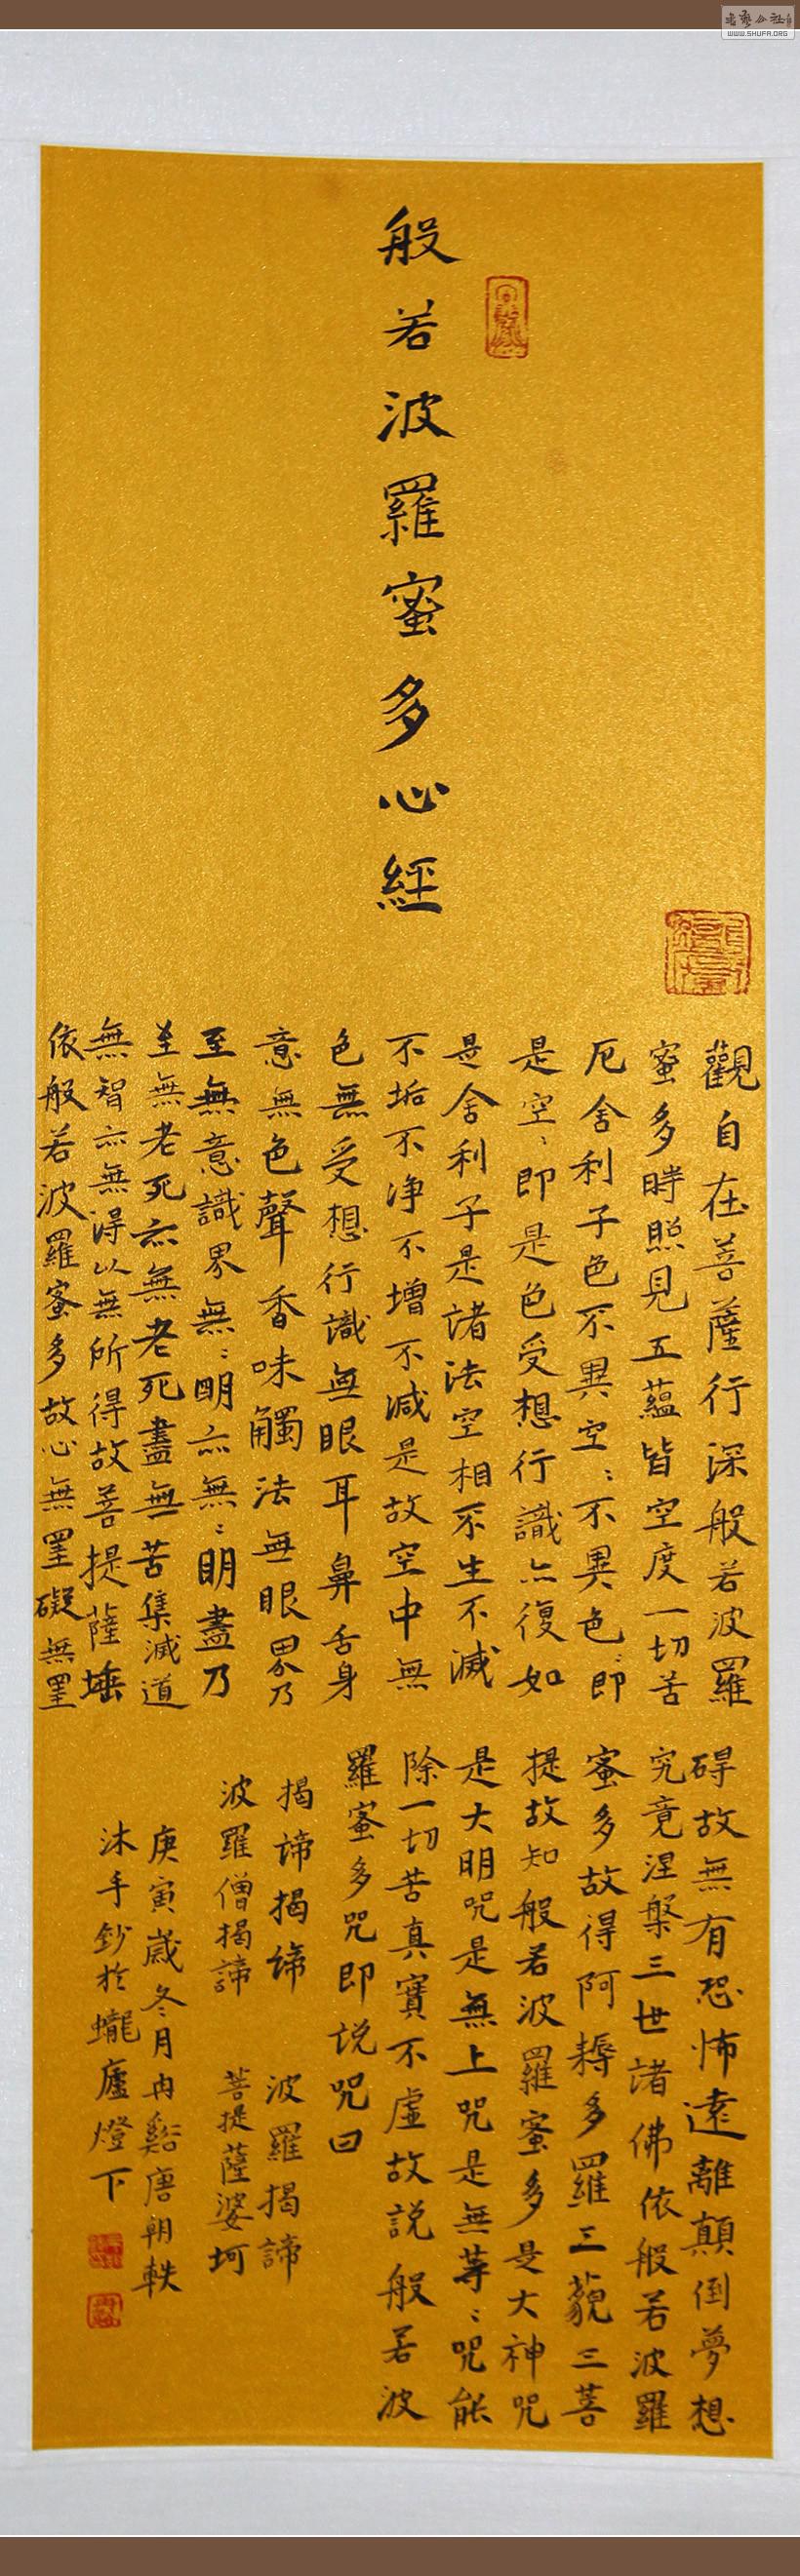 般若波羅蜜多心經
觀自在菩薩行深般若波羅
蜜多時照見五蘊皆空度一切苦
厄舍利子色不異空〻不異色〻即
是空〻即是色受想行識亦復如
是舍利子是諸法空相不生不滅
不垢不净不增不減是故空中無
色無受想行識無眼耳鼻舌身
意無色聲香味觸法無眼界乃
至無意識界無〻明亦無〻明盡乃
至無老死亦無老死盡無苦集滅道
無智亦無得以無所得故菩提薩埵
依般若波羅蜜多故心無罣礙無罣
碍故無有恐怖遠離顛倒夢想
究竟涅槃三世諸佛依般若波羅
蜜多故得阿耨多羅三藐三菩
提故知般若波羅蜜多是大神咒
是大明咒是無上咒是無等〻咒能
除一切苦真實不虛故說般若波
羅蜜多咒即說咒曰
揭諦揭諦 波羅揭諦
波羅僧揭諦 菩提薩婆訶
庚寅歲冬月冉谿唐朝軼
沐手鈔於蠬廬燈下
WWW.SHUFA.ORG